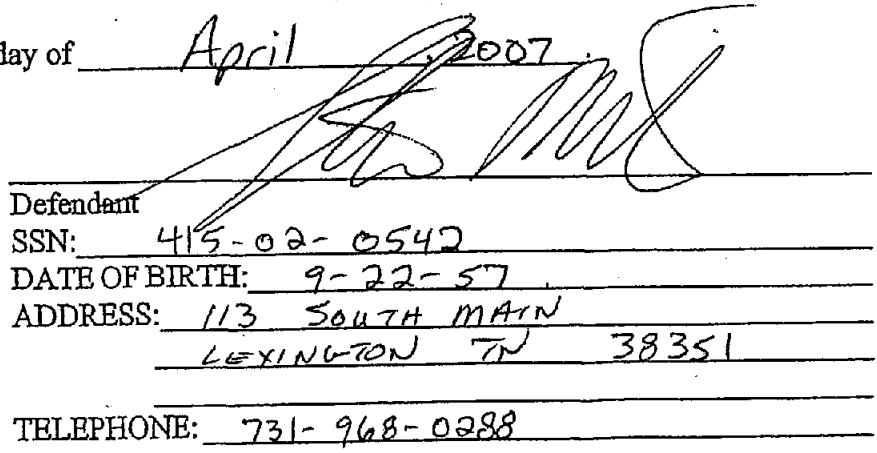 day of April, 2007.
Defendant
SSN: 415-02-0542
DATE OF BIRTH: 9-22-57
ADDRESS: 113 SOUTH MAIN
LEXINGTON TN 38351
TELEPHONE: 731-968-0288